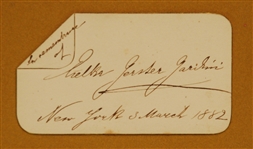 In remembrance
of
Etelka Gerster Gardini
New York 3 March 1882